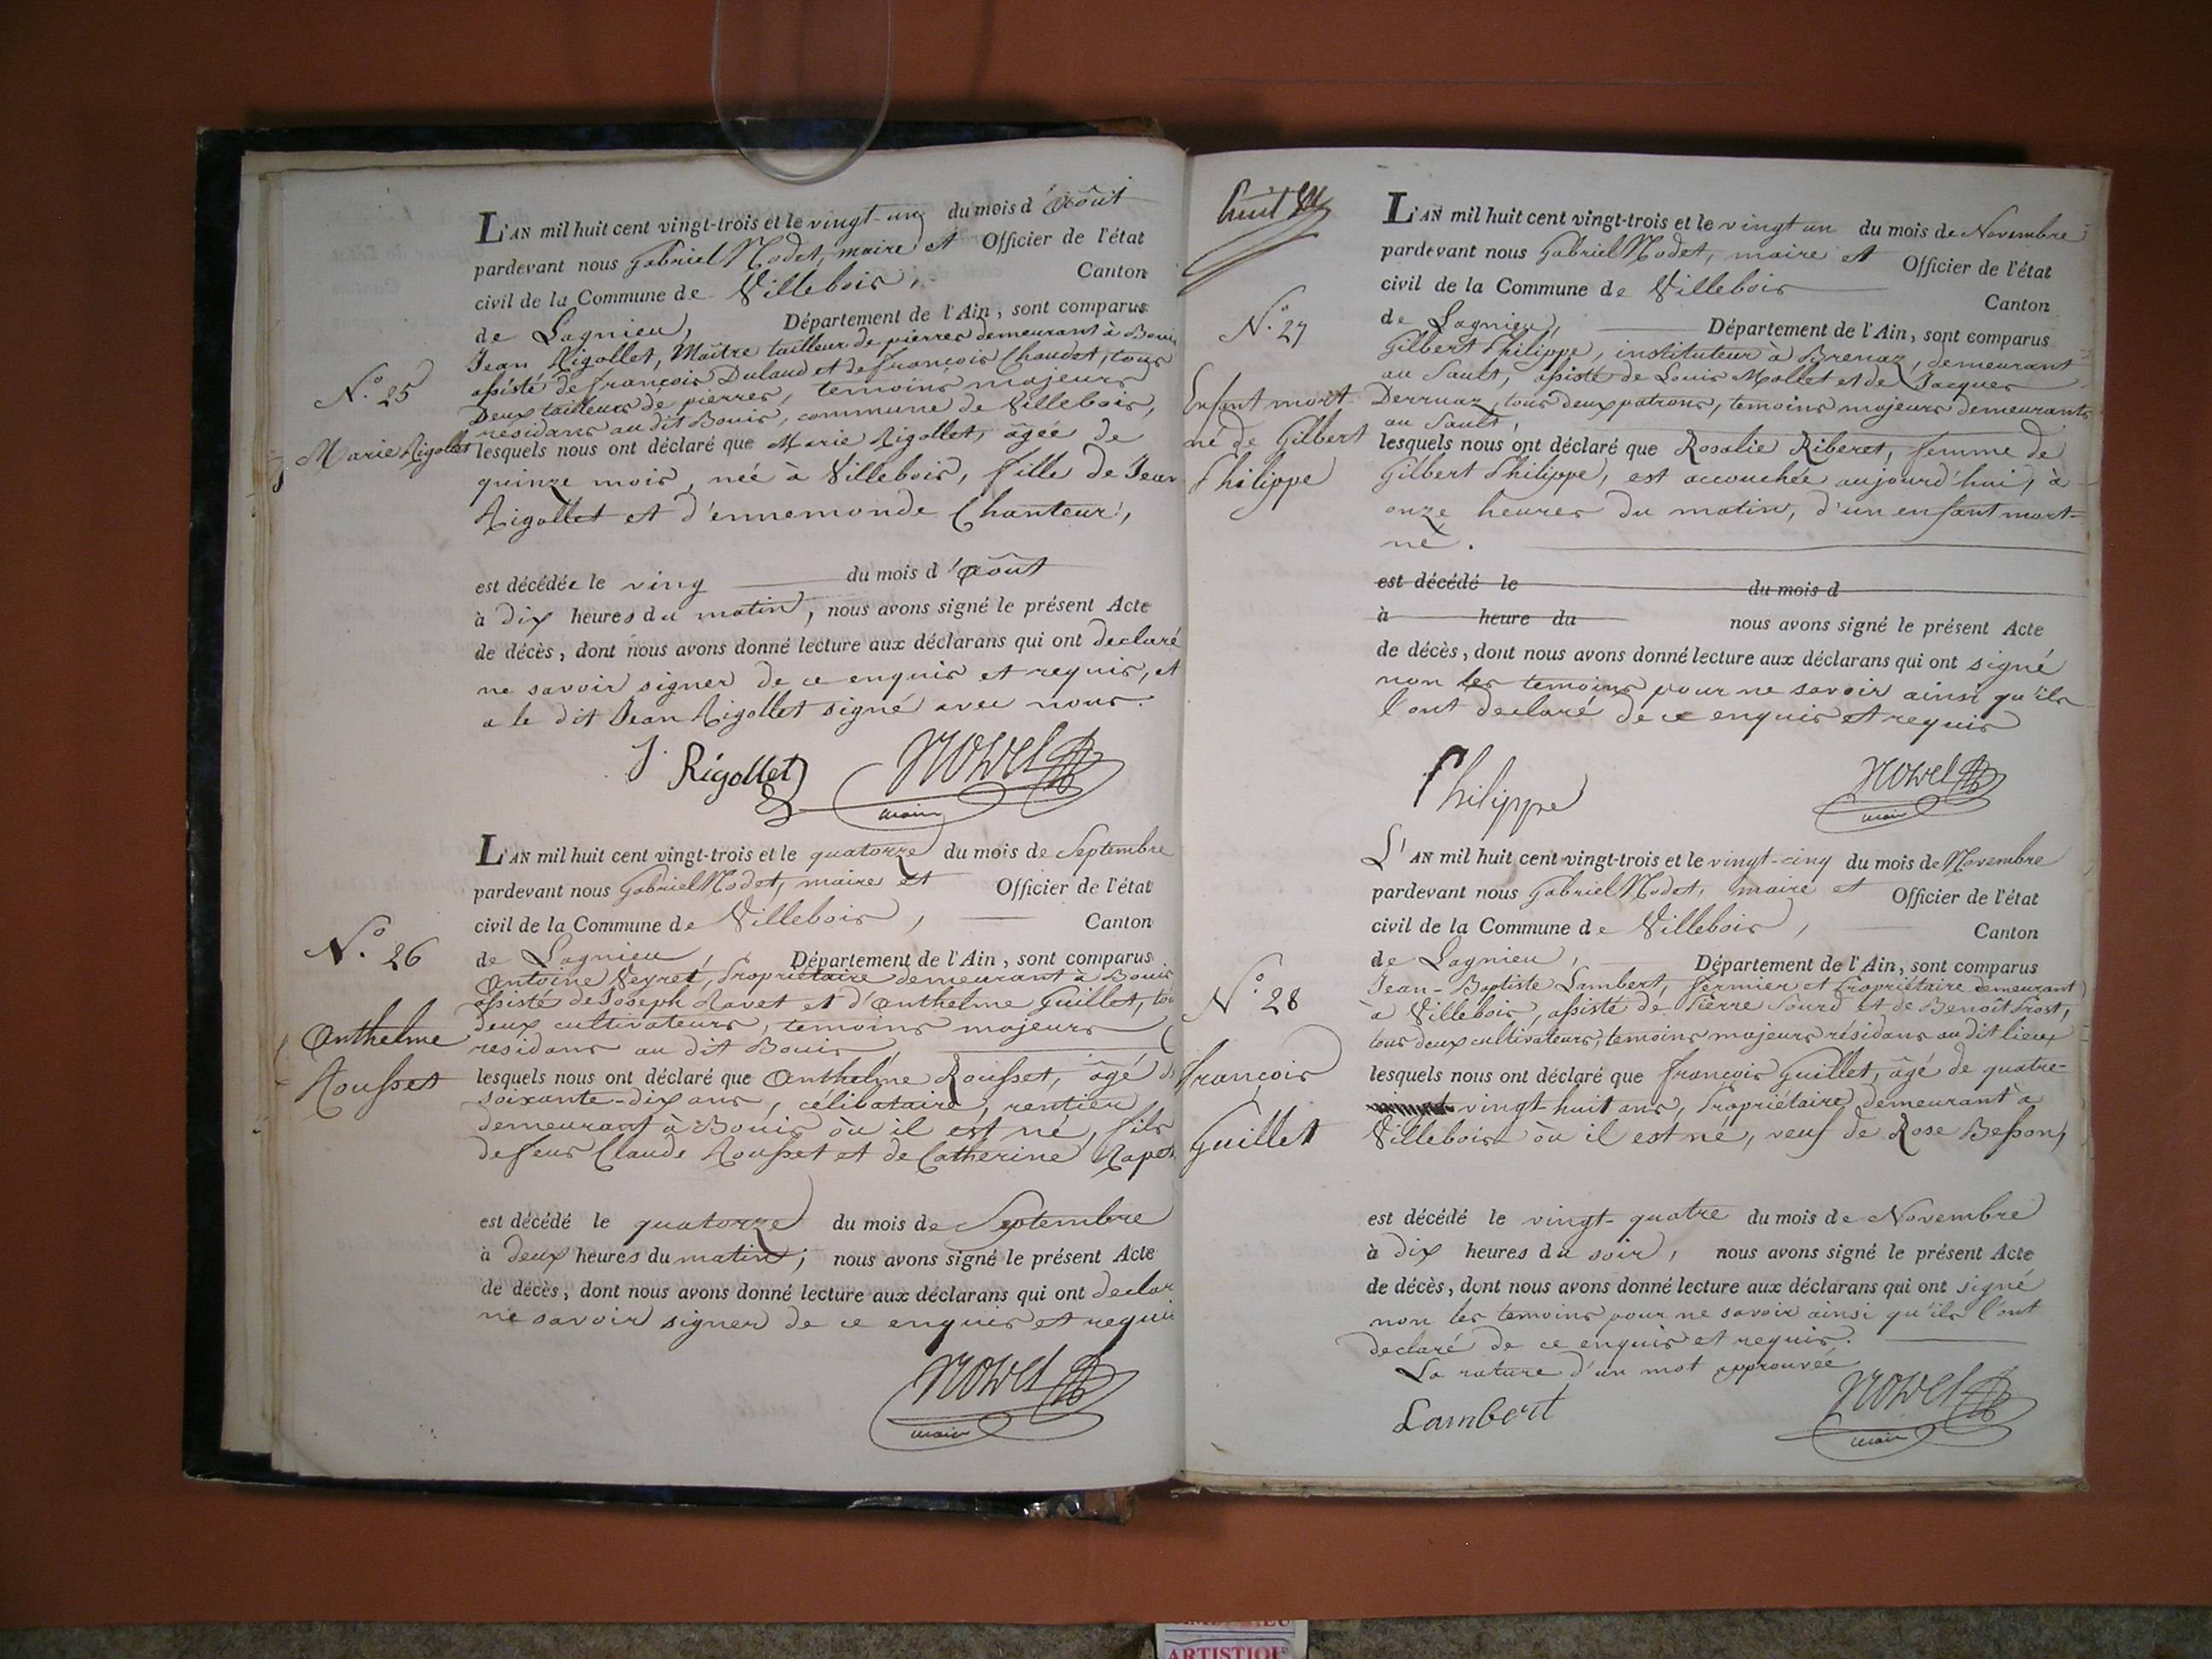 L'AN mil huit cent vingt-trois et le vingt-un du mois d'Août
pardevant nous Gabriel Nodet, maire et Officier de l'état
civil de la Commune de Villebois, Canton
de Lagnieu, Département de l'Ain, sont comparus
Jean Rigollet, Maître tailleur de pierres demeurant à Bouis
assisté de françois Dulaud et de françois Chaudet, tous
Deux tailleurs de pierres, temoins majeurs
résidans au dit Bouis, commune de Villebois,
N.o 25
Marie Rigollet
lesquels nous ont déclaré que Marie Rigollet, âgée de
quinze mois, née à Villebois, fille de Jean
Rigollet et d'ennemonde Chanteur,
est décédée le vingt du mois d'Août
à dix heures du matin, nous avons signé le présent Acte
de décès, dont nous avons donné lecture aux déclarans qui ont declaré
ne savoir signer de ce enquis et requis, et
a le dit Jean Rigollet signé avec nous.
J. Rigollet
maire
L'AN mil huit cent vingt-trois et le quatorze du mois de Septembre
pardevant nous Gabriel Nodet, maire et Officier de l'état
civil de la Commune de Villebois, Canton
N.o 26
de Lagnieu, Département de l'Ain, sont comparus
Antoine Veyret, Propriétaire demeurant à Bouis
assisté de Joseph Ravet et d'Anthelme Guillet, tou
deux cultivateurs, temoins majeurs
residans au dit Bouis
Anthelme
Rousset
lesquels nous ont déclaré que Anthelme Rousset, âgé de
soixante-dix ans, célibataire, rentier
demeurant à Bouis où il est né, fils
de feus Claude Rousset et de Catherine Rapet
est décédé le quatorze du mois de Septembre
à deux heures du matin; nous avons signé le présent Acte
de décès, dont nous avons donné lecture aux déclarans qui ont declar
ne savoir signer de ce enquis et requis
maire
huit
L'AN mil huit cent vingt-trois et le vingt un du mois de Novembre
pardevant nous Gabriel Nodet, maire et Officier de l'état
civil de la Commune de Villebois Canton
N.o 27
de Lagnieu, Département de l'Ain, sont comparus
Gilbert Philippe, instituteur à Brenaz, demeurant
au Sault, assisté de Louis Mollet et de Jacques
Derruaz, tous deux patrons, temoins majeurs demeurants
au Sault,
Enfant mort-
né de Gilbert
Philippe
lesquels nous ont déclaré que Rosalie Riberet, femme de
Gilbert Philippe, est accouchée aujourd'hui, à
onze heures du matin, d'un enfant mort-
né.
est décédé le du mois d
à heure du nous avons signé le présent Acte
de décès, dont nous avons donné lecture aux déclarans qui ont signé
non les temoins pour ne savoir ainsi qu'ils
l'ont declaré de ce enquis et requis
Philippe
maire
L'AN mil huit cent vingt-trois et le vingt-cinq du mois de Novembre
pardevant nous Gabriel Nodet, maire et Officier de l'état
civil de la Commune de Villebois, Canton
de Lagnieu, Département de l'Ain, sont comparus
N.o 28
Jean-Baptiste Lambert, fermier et Propriétaire demeurant
à Villebois, assisté de Pierre Sourd et de Benoît Prost,
tous deux cultivateurs, temoins majeurs résidans au dit lieux
françois
Guillet
lesquels nous ont déclaré que françois Guillet, âgé de quatre-
vingt-huit ans, Propriétaire demeurant à
Villebois où il est né, veuf de Rose Besson,
est décédé le vingt-quatre du mois de Novembre
à dix heures du soir, nous avons signé le présent Acte
de décès, dont nous avons donné lecture aux déclarans qui ont signé
non les temoins pour ne savoir ainsi qu'ils l'ont
declaré de ce enquis et requis.
La rature d'un mot approuvée
Lambert
maire
ARTISTIQUE